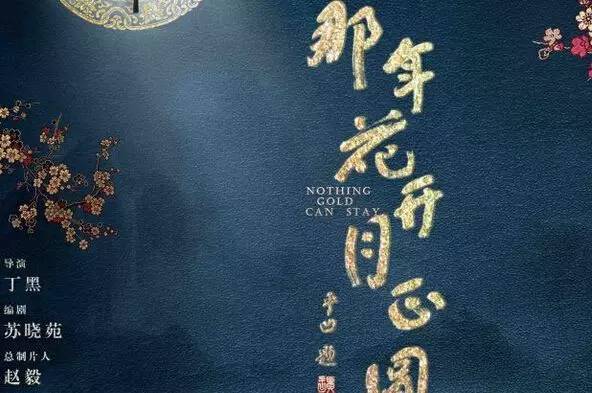 那年花开月正圆
NOTHING
GOLD
CAN STAY
平凹题
导演
丁黑
编剧
苏晓苑
总制片人
赵毅